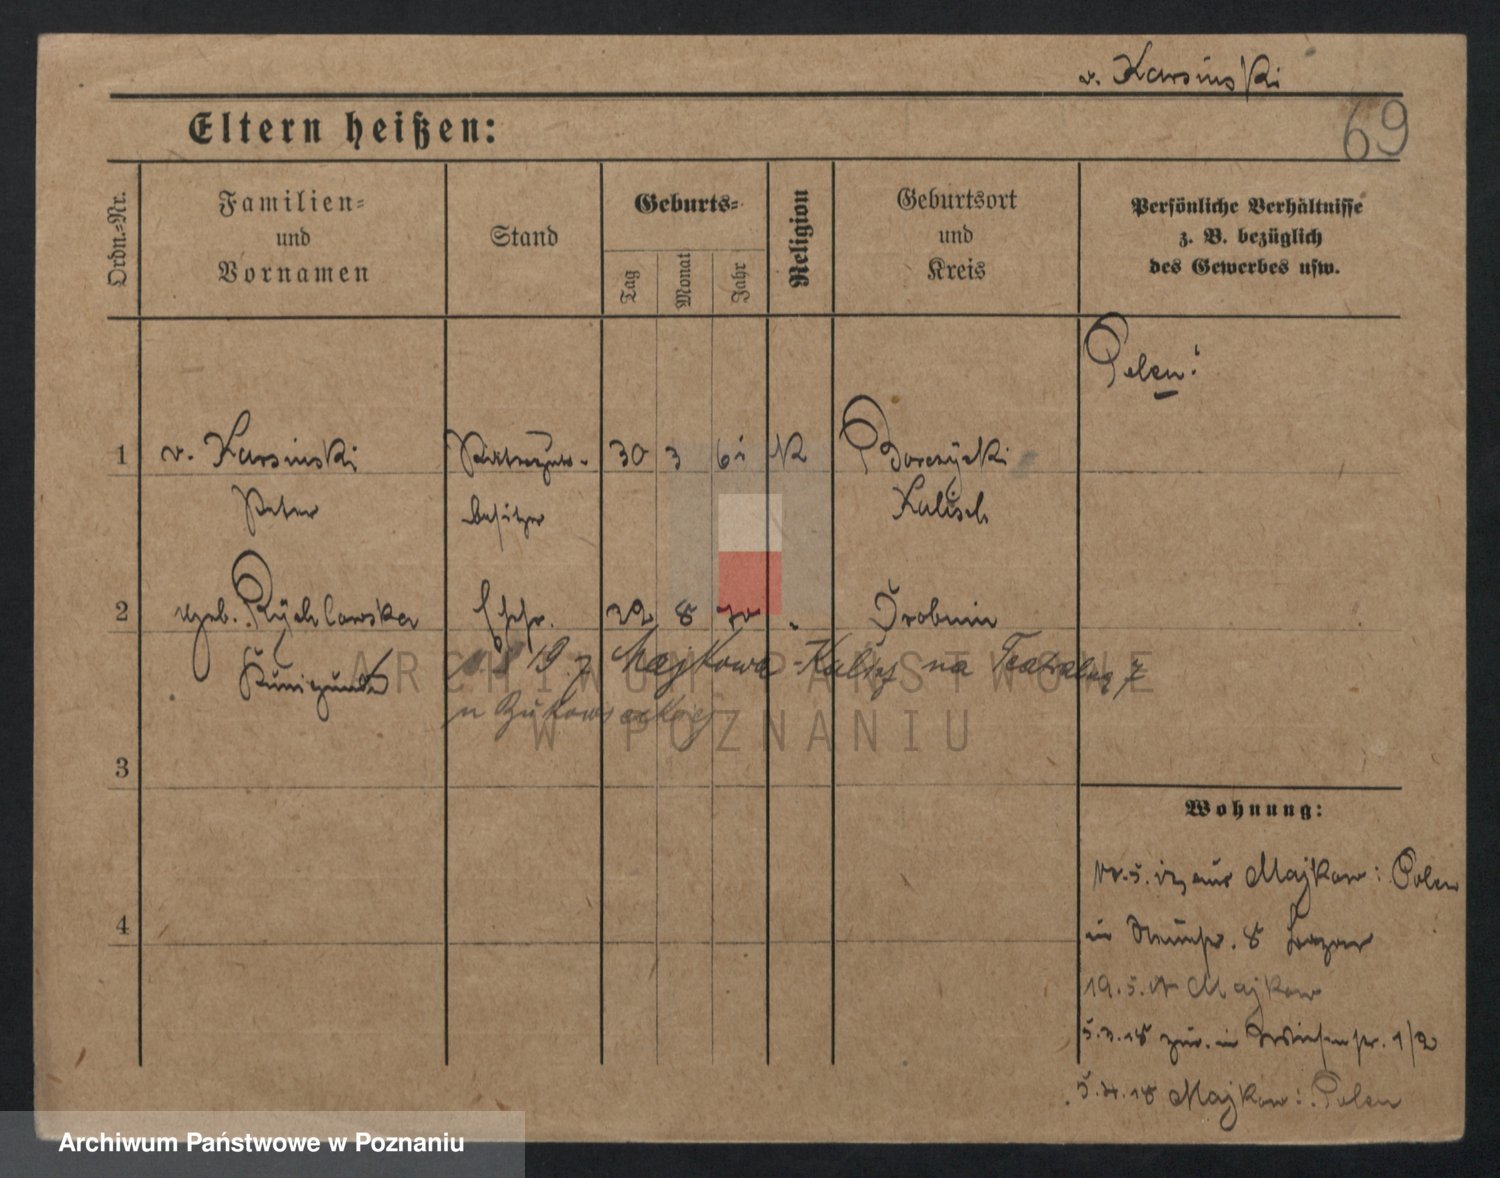 v. Karsinski
69
Eltern heißen:
Ordn.-Nr.
Familien- und Vornamen
Stand
Geburts-
Tag
Monat
Jahr
Religion
Geburtsort und Kreis
Persönliche Verhältnisse z. B. bezüglich des Gewerbes usw.
Polen!
1
v. Karsinski
Ritterguts-
30 3 61
K
Borczyski
Peter
besitzer
Kalisch
2
geb. Rÿchlowska
Ehefr.
22 8 70
"
Drobnin
Kunigunde
19 7 Majkowa - na Teatralną 7
ARCHIWUM PAŃSTWOWE
W POZNANIU
3
Wohnung:
aus Majkow: Polen
4
in 8
19.5. Majkow
5.3.18 zur. in 1/2
5.4.18 Majkow: Polen
Archiwum Państwowe w Poznaniu